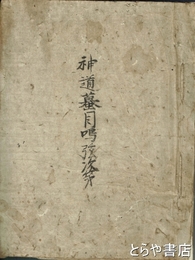 神道蟇目鳴弦次第
とらや書店